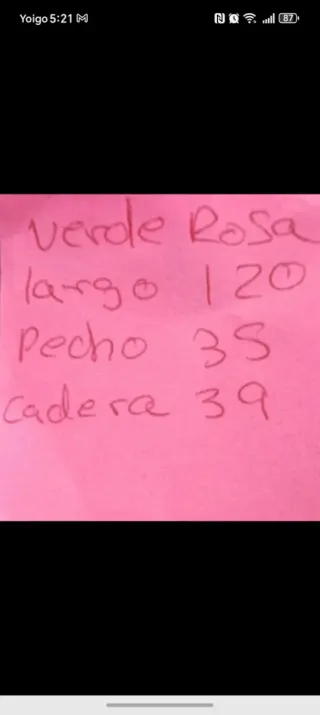 Yoigo 5:21
87
verde Rosa
largo 120
Pecho 35
cadera 39